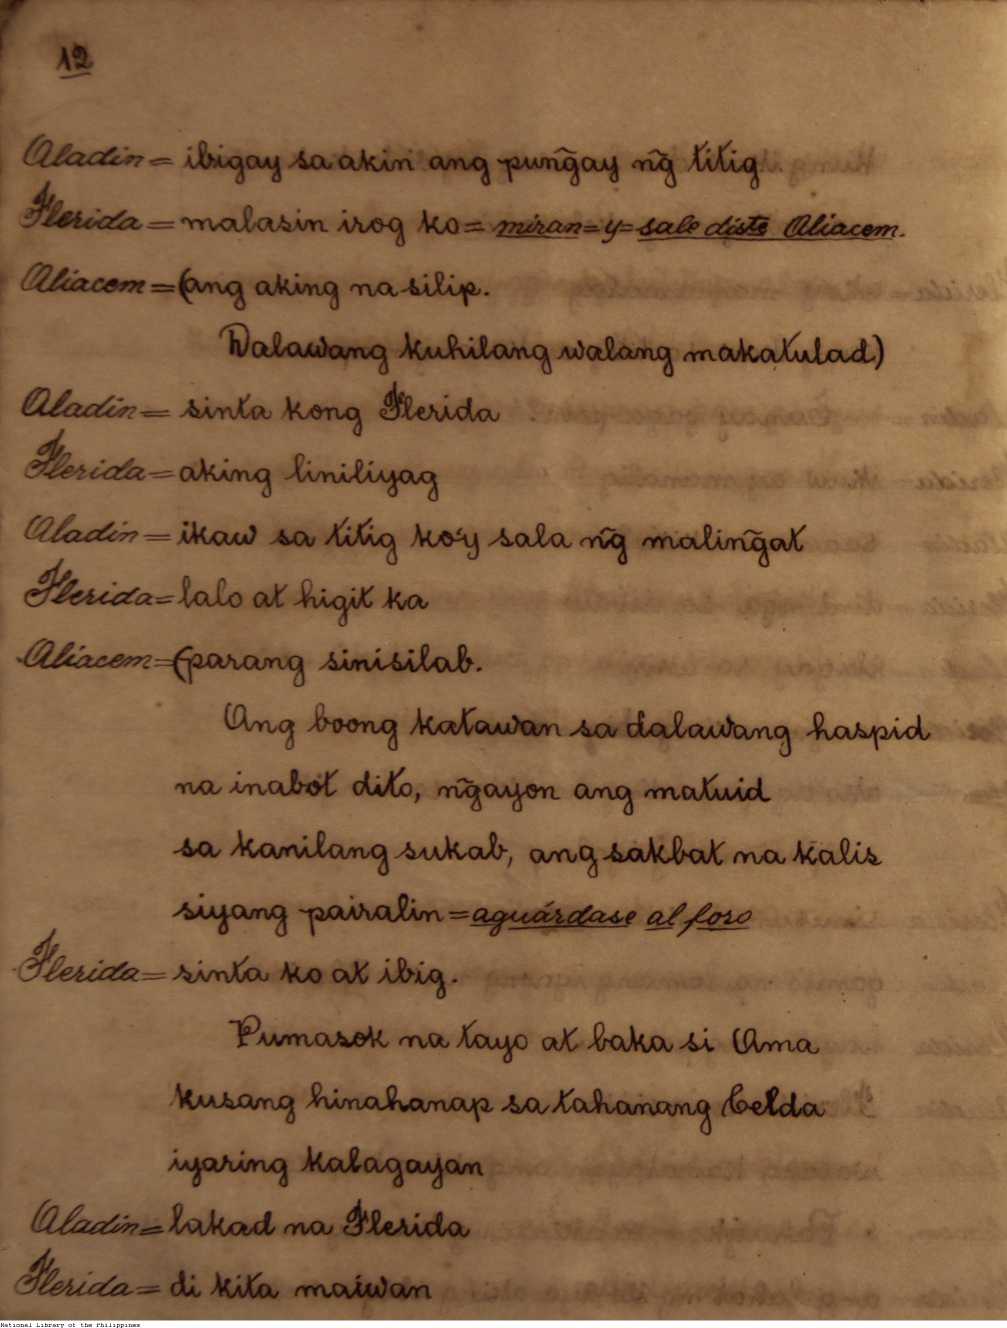 12
Aladin = ibigay sa akin ang pung̃ay ng̃ titig
Flerida = malasin irog ko = miran = y = sale díste Aliacem.
Aliacem = (ang aking na silip.
Dalawang kuhilang walang makatulad)
Aladin = sinta kong Flerida
Flerida = aking liniliyag
Aladin = ikaw sa titig ko'y sala ng̃ maling̃at
Flerida = lalo at higit ka
Aliacem = (parang sinisilab.
Ang boong katawan sa dalawang haspid
na inabot dito, ng̃ayon ang matuid
sa kanilang sukab, ang sakbat na kalis
siyang pairalin = aguárdase al foro
Flerida = sinta ko at ibig.
Pumasok na tayo at baka si Ama
kusang hinahanap sa tahanang Celda
iyaring kalagayan
Aladin = lakad na Flerida
Flerida = di kita maiwan
National Library of the Philippines